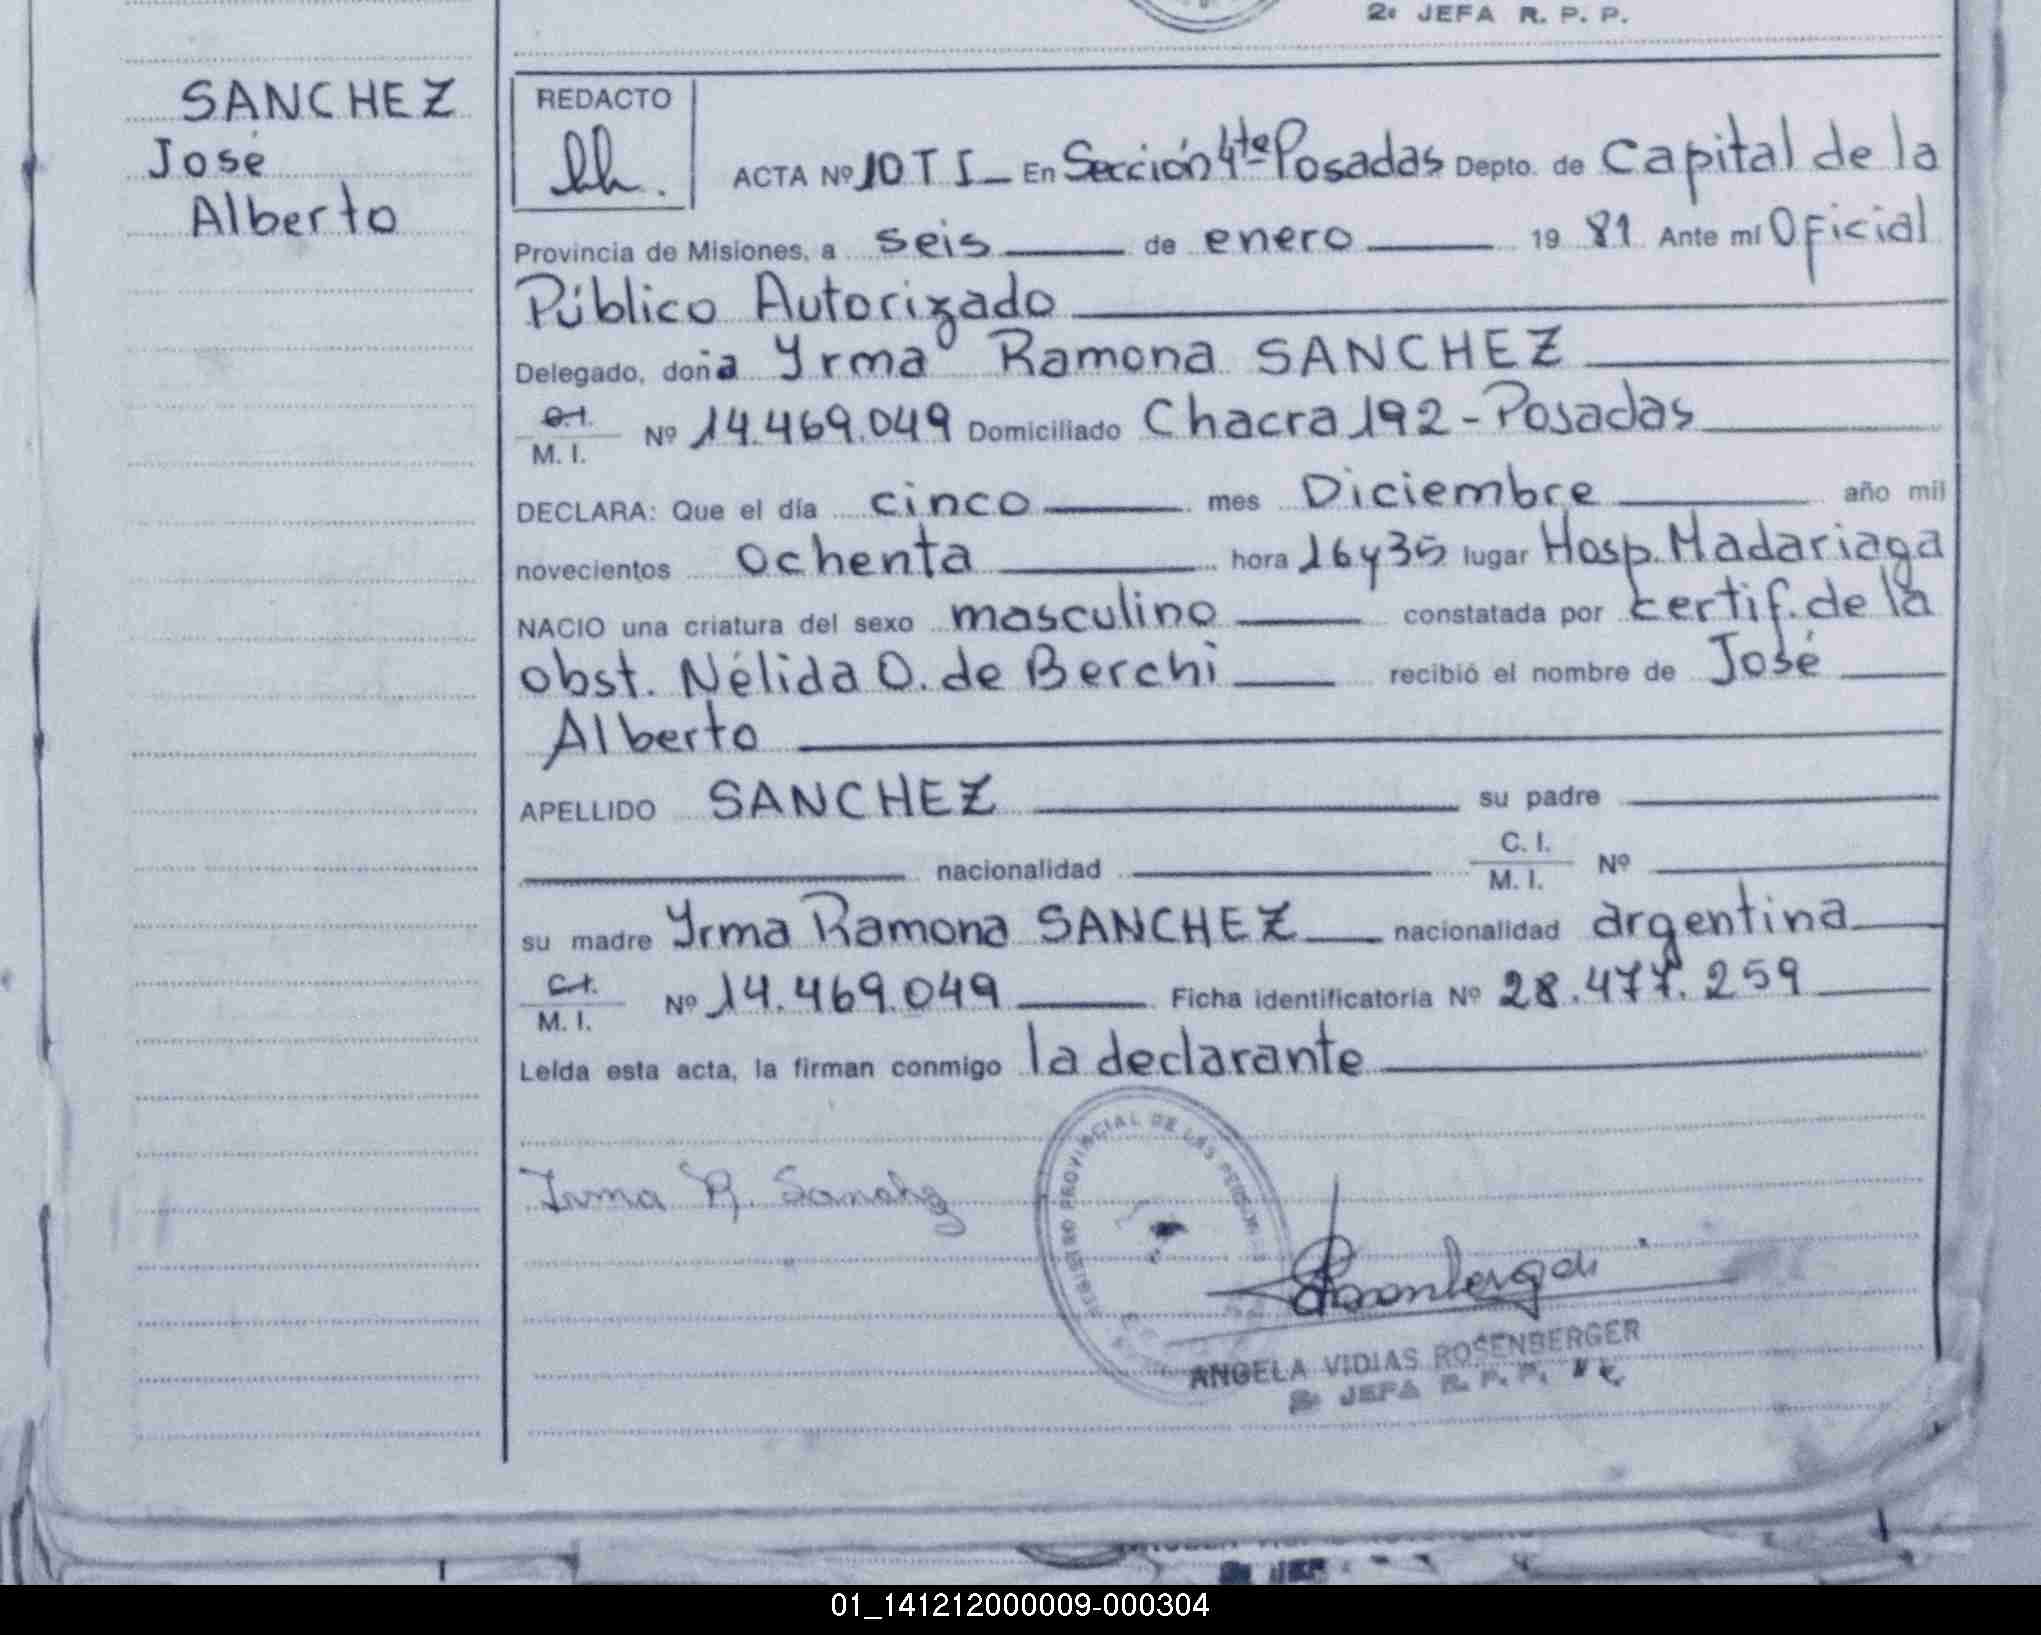 2e JEFA R. P. P.
SANCHEZ
José
Alberto
REDACTO
ACTA Nº 10 T I En Sección 4ta Posadas Depto. de Capital de la
Provincia de Misiones, a seis de enero 19 81 Ante mí Oficial
Público Autorizado
Delegado, doña Yrma Ramona SANCHEZ
C.I.
M. I. Nº 14.469.049 Domiciliado Chacra 192 - Posadas
DECLARA: Que el día cinco mes Diciembre año mil
novecientos ochenta hora 16 y 35 lugar Hosp. Madariaga
NACIO una criatura del sexo masculino constatada por certif. de la
obst. Nélida O. de Berchi recibió el nombre de José
Alberto
APELLIDO SANCHEZ su padre
nacionalidad C. I.
M. I. Nº
su madre Yrma Ramona SANCHEZ nacionalidad argentina
C.I.
M. I. Nº 14.469.049 Ficha identificatoria Nº 28.477.259
Leída esta acta, la firman conmigo la declarante
REGISTRO PROVINCIAL DE LAS PERSONAS
Irma R. Sanchez
ANGELA VIDIAS ROSENBERGER
2e JEFA R. P. P.
01_141212000009-000304